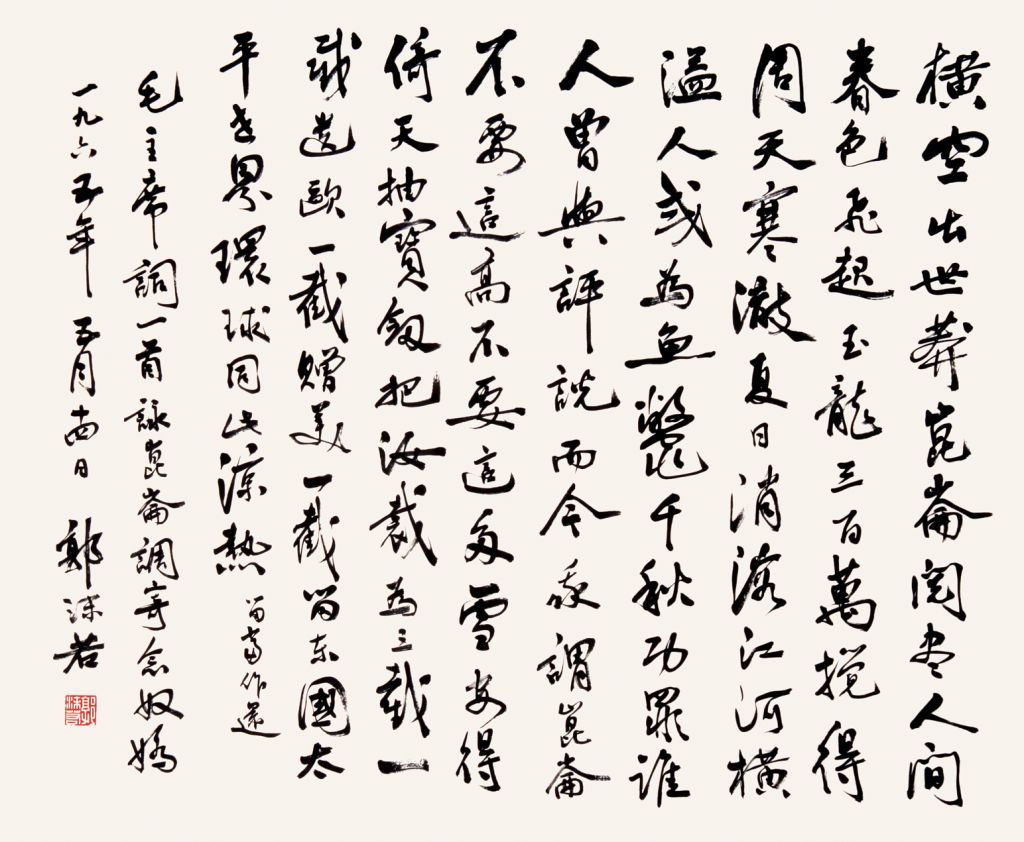 橫空出世莽崑崙閱尽人間
春色飛起玉龍三百萬攪得
周天寒澈夏日消溶江河橫
溢人或為魚鱉千秋功罪誰
人曾與評說而今我謂崑崙
不要這高不要這多雪安得
倚天抽寶劍把汝裁為三截一
截遺歐一截贈美一截留東國太
平世界環球同此涼熱 留當作還
毛主席詞一首詠崑崙調寄念奴嬌
一九六五年五月十四日 郭沫若
郭沫若